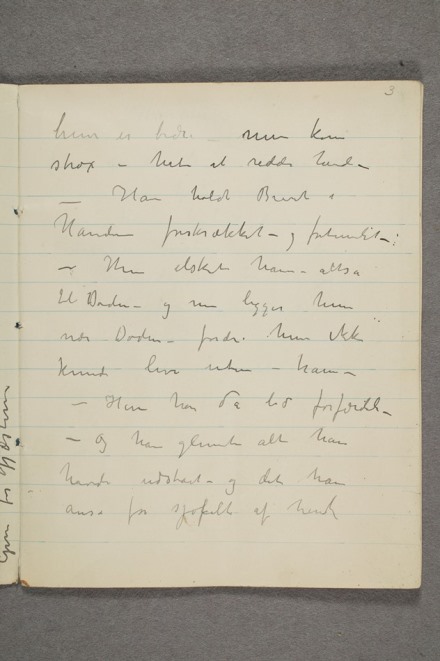 3
hun er bedre – men kom
strax – helt at redde hend–
– Han holdt Brevet i
Hånden forskrækket – og fortumlet –;
– Hun elsket ham – altså
til Døden – og nu ligger hun
nær Døden – fordi hun ikke
kunde leve uten – ham –
– Hun har da lidt forfærdel–
– Og han glemte alt han
havde udstået – og det han
anså for sjofelt af hende